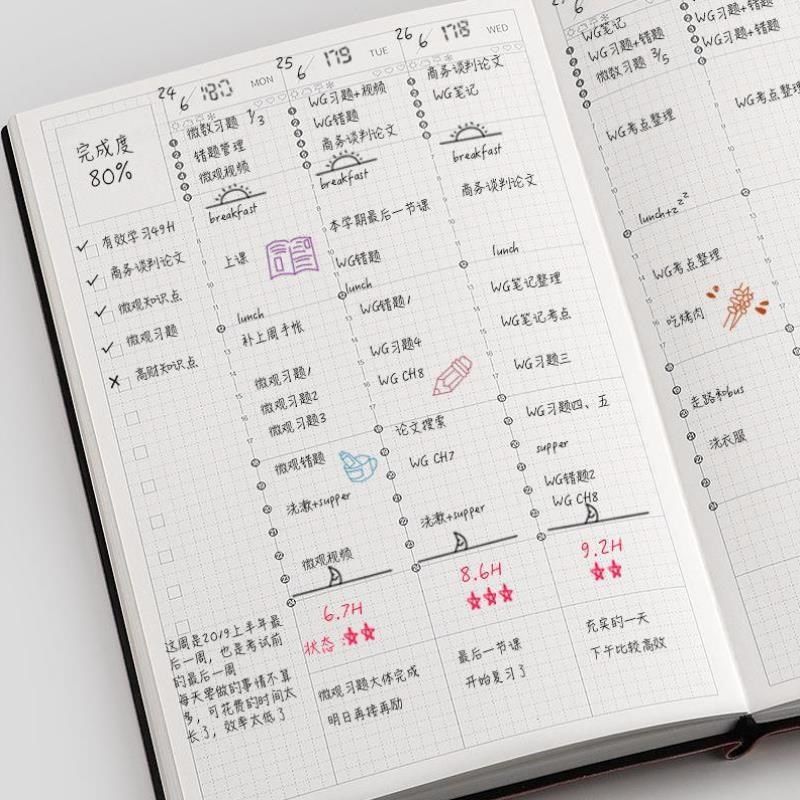 完成度
80%
有效学习49H
商务谈判论文
微观知识点
微观习题
高财知识点
这周是2019上半年最
后一周，也是考试前
的最后一周
每天要做的事情不算
多，可花费的时间太
长了，效率太低了
24/6 180 MON
微数习题 1/3
错题管理
微观视频
breakfast
上课
lunch
补上周手帐
微观习题1
微观习题2
微观习题3
微观错题
洗漱+supper
微观视频
6.7H
状态：
微观习题大体完成
明日再接再励
25/6 179 TUE
WG习题+视频
WG错题
商务谈判论文
breakfast
本学期最后一节课
WG错题
lunch
WG错题1
WG习题4
WG CH8
论文搜索
WG CH7
洗漱+supper
8.6H
最后一节课
开始复习了
26/6 178 WED
商务谈判论文
WG笔记
breakfast
商务谈判论文
lunch
WG笔记整理
WG笔记考点
WG习题三
WG习题四、五
supper
WG错题2
WG CH8
9.2H
充实的一天
下午比较高效
WG笔记
WG习题+错题
微数习题 3/5
WG考点整理
lunch+zzz
WG考点整理
吃烤肉
走路和bus
洗衣服
WG习题+错题
WG习题+错题
WG考点整理